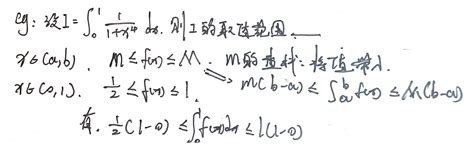 eg: 设 I = ∫₀¹ 1/(1+x⁴) dx. 则 I 的取值范围 ____
x∈(a,b). m ≤ f(x) ≤ M. m的 : 将值带入.
x∈(0,1). 1/2 ≤ f(x) ≤ 1. ⟹ m(b-a) ≤ ∫ₐᵇ f(x) ≤ M(b-a)
有. 1/2(1-0) ≤ ∫₀¹ f(x)dx ≤ 1(1-0)